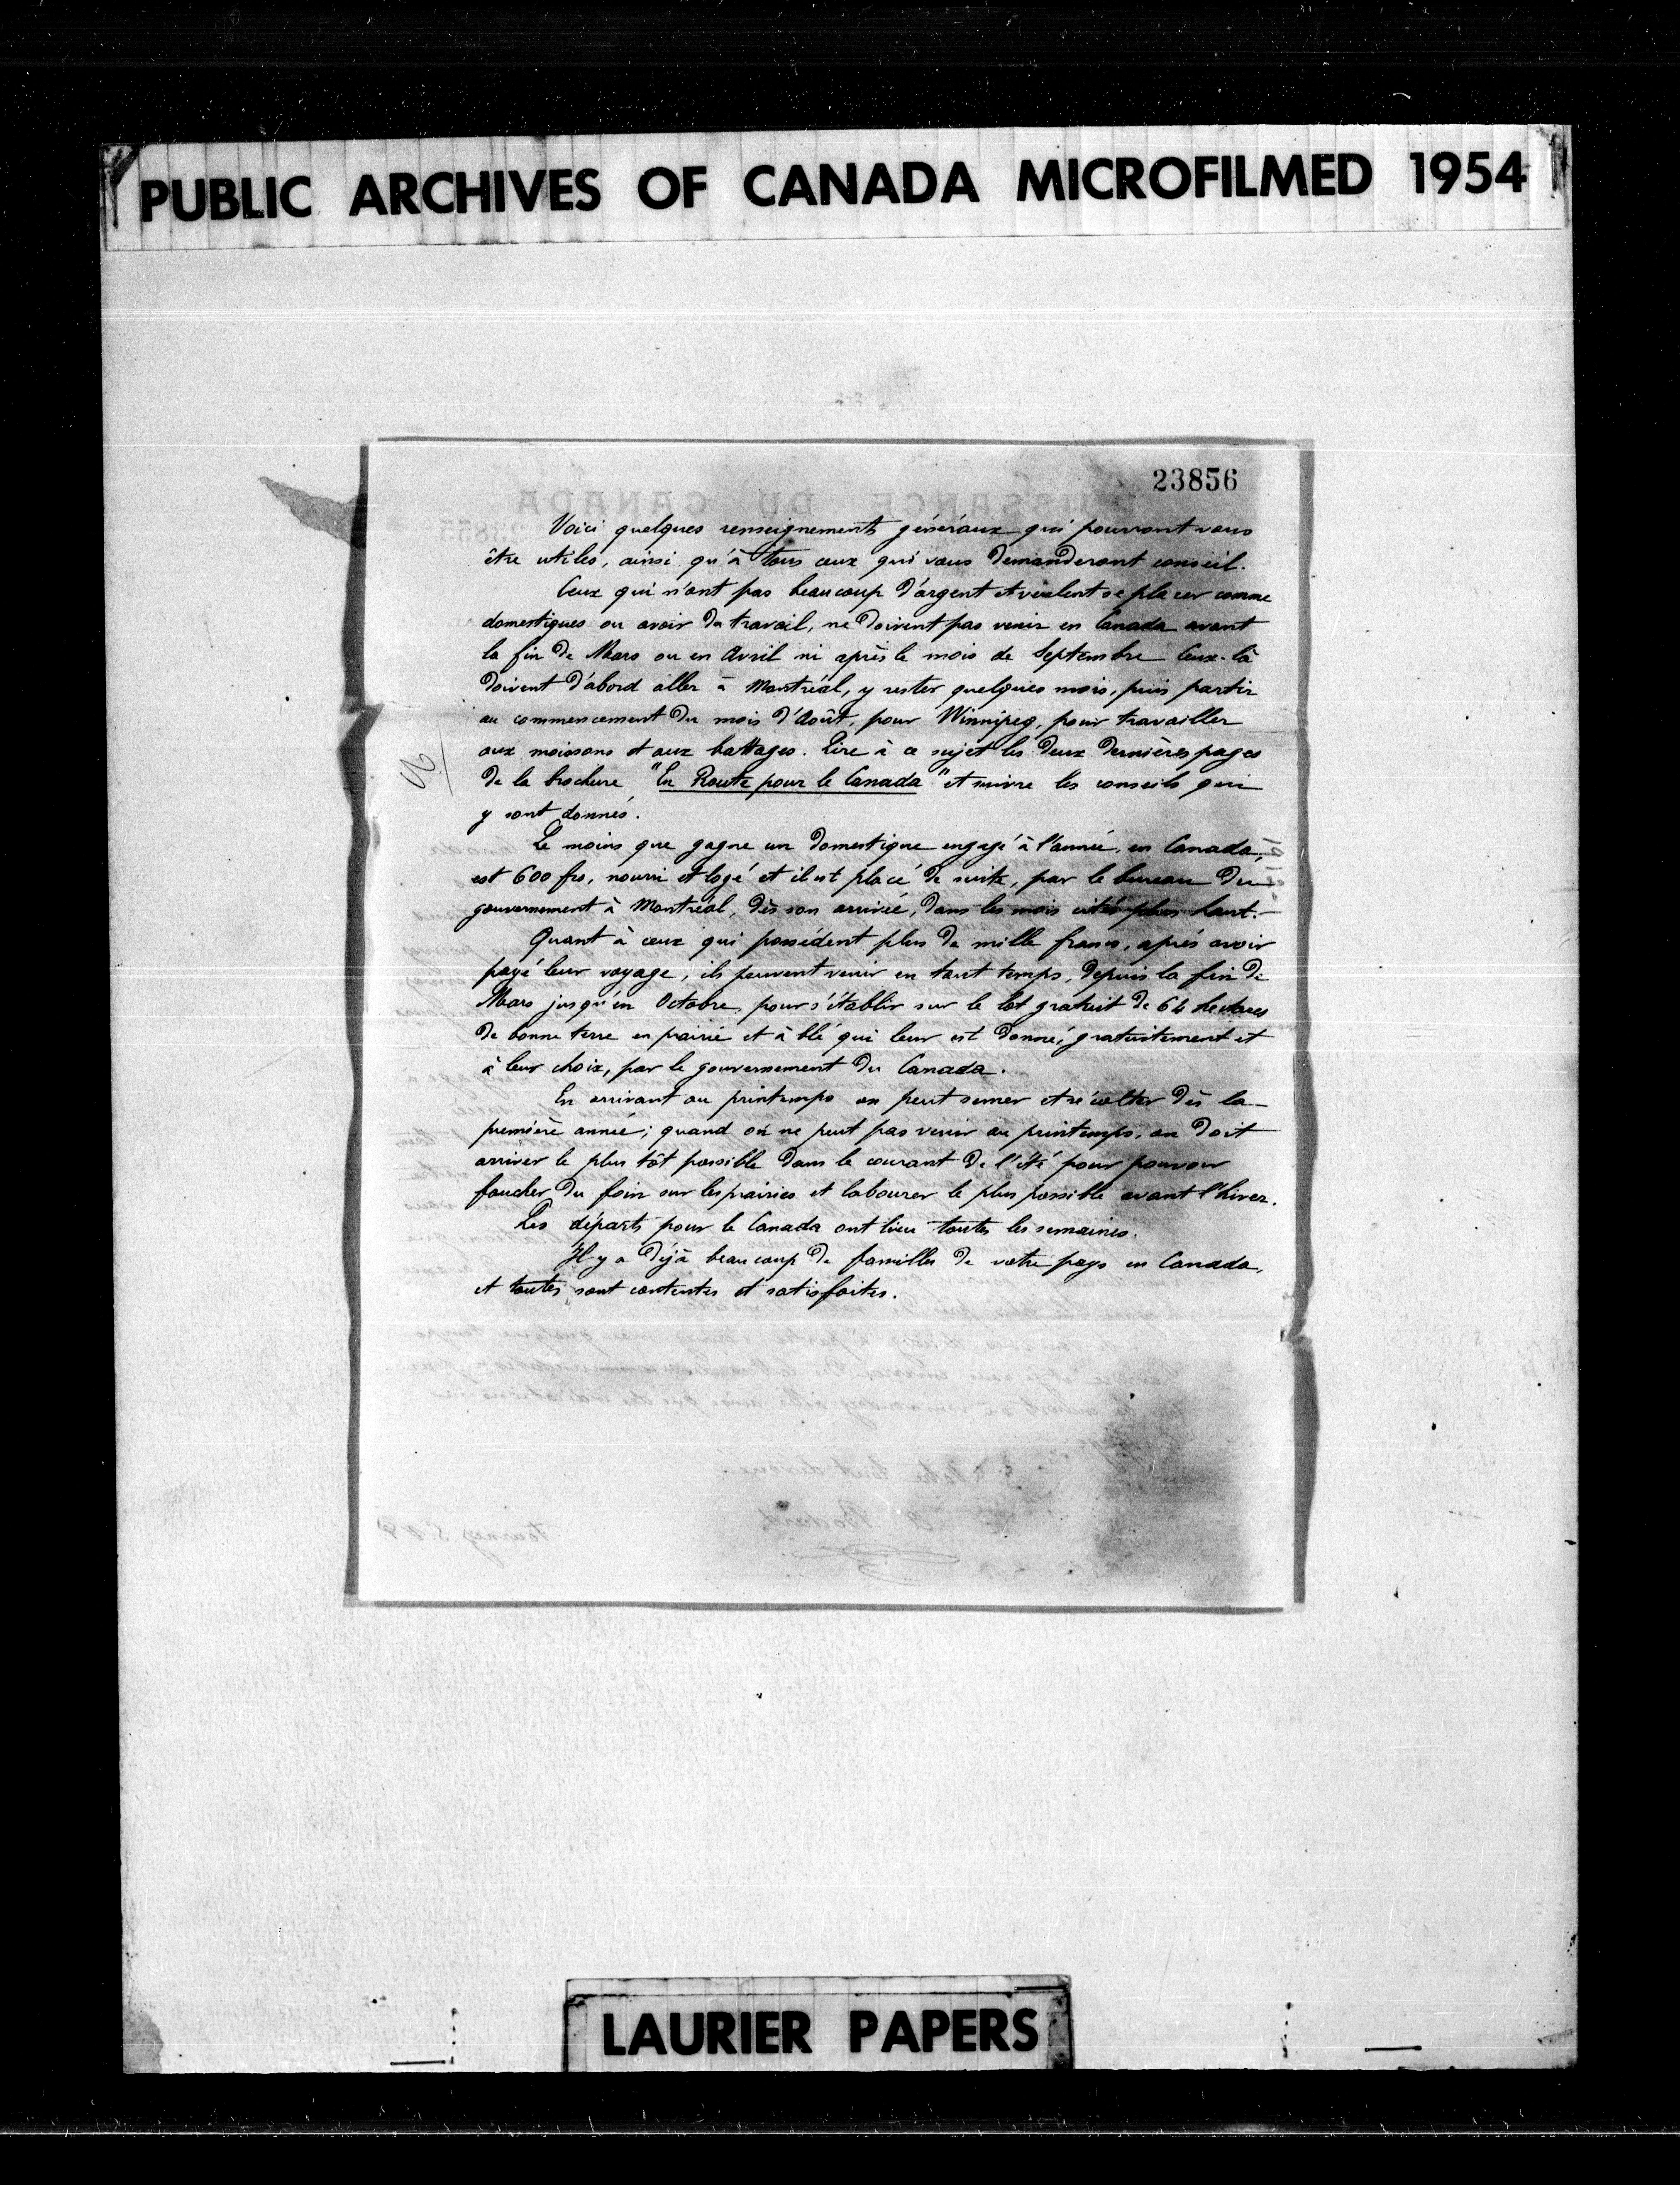 PUBLIC ARCHIVES OF CANADA MICROFILMED 1954
23856
Voici quelques renseignements généraux qui pourront vous
être utiles, ainsi qu'à tous ceux qui vous demanderont conseil.
Ceux qui n'ont pas beaucoup d'argent et veulent se placer comme
domestiques ou avoir du travail, ne doivent pas venir en Canada avant
la fin de Mars ou en Avril ni après le mois de Septembre Ceux-là
doivent d'abord aller à Montréal, y rester quelques mois, puis partir
au commencement du mois d'Août, pour Winnipeg, pour travailler
aux moissons et aux battages. Lire à ce sujet les deux dernières pages
de la brochure "En Route pour le Canada" et suivre les conseils qui
y sont donnés.
Le moins que gagne un domestique engagé à l'année, en Canada,
est 600 frs, nourri et logé et il est placé de suite, par le bureau du
gouvernement à Montréal, dès son arrivée, dans les mois cités plus haut.-
Quant à ceux qui possèdent plus de mille francs, après avoir
payé leur voyage, ils peuvent venir en tout temps, depuis la fin de
Mars jusqu'en Octobre, pour s'établir sur le lot gratuit de 64 hectares
de bonne terre en prairie et à blé qui leur est donné, gratuitement et
à leur choix, par le gouvernement du Canada.
En arrivant au printemps on peut semer et récolter dès la
première année; quand on ne peut pas venir au printemps, on doit
arriver le plus tôt possible dans le courant de l'été pour pouvoir
faucher du foin sur les prairies et labourer le plus possible avant l'hiver.
Les départs pour le Canada ont lieu toutes les semaines.
Il y a déjà beaucoup de familles de votre pays en Canada,
et toutes sont contentes et satisfaites.
LAURIER PAPERS